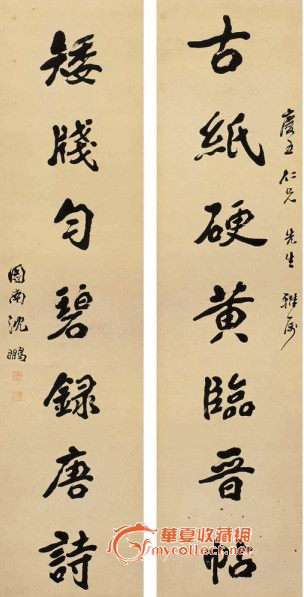 慶五仁兄 先生 雅屬
古紙硬黄臨晉帖
矮牋匀碧録唐詩
圖南沈鵬
華夏收藏網
mycollect.net